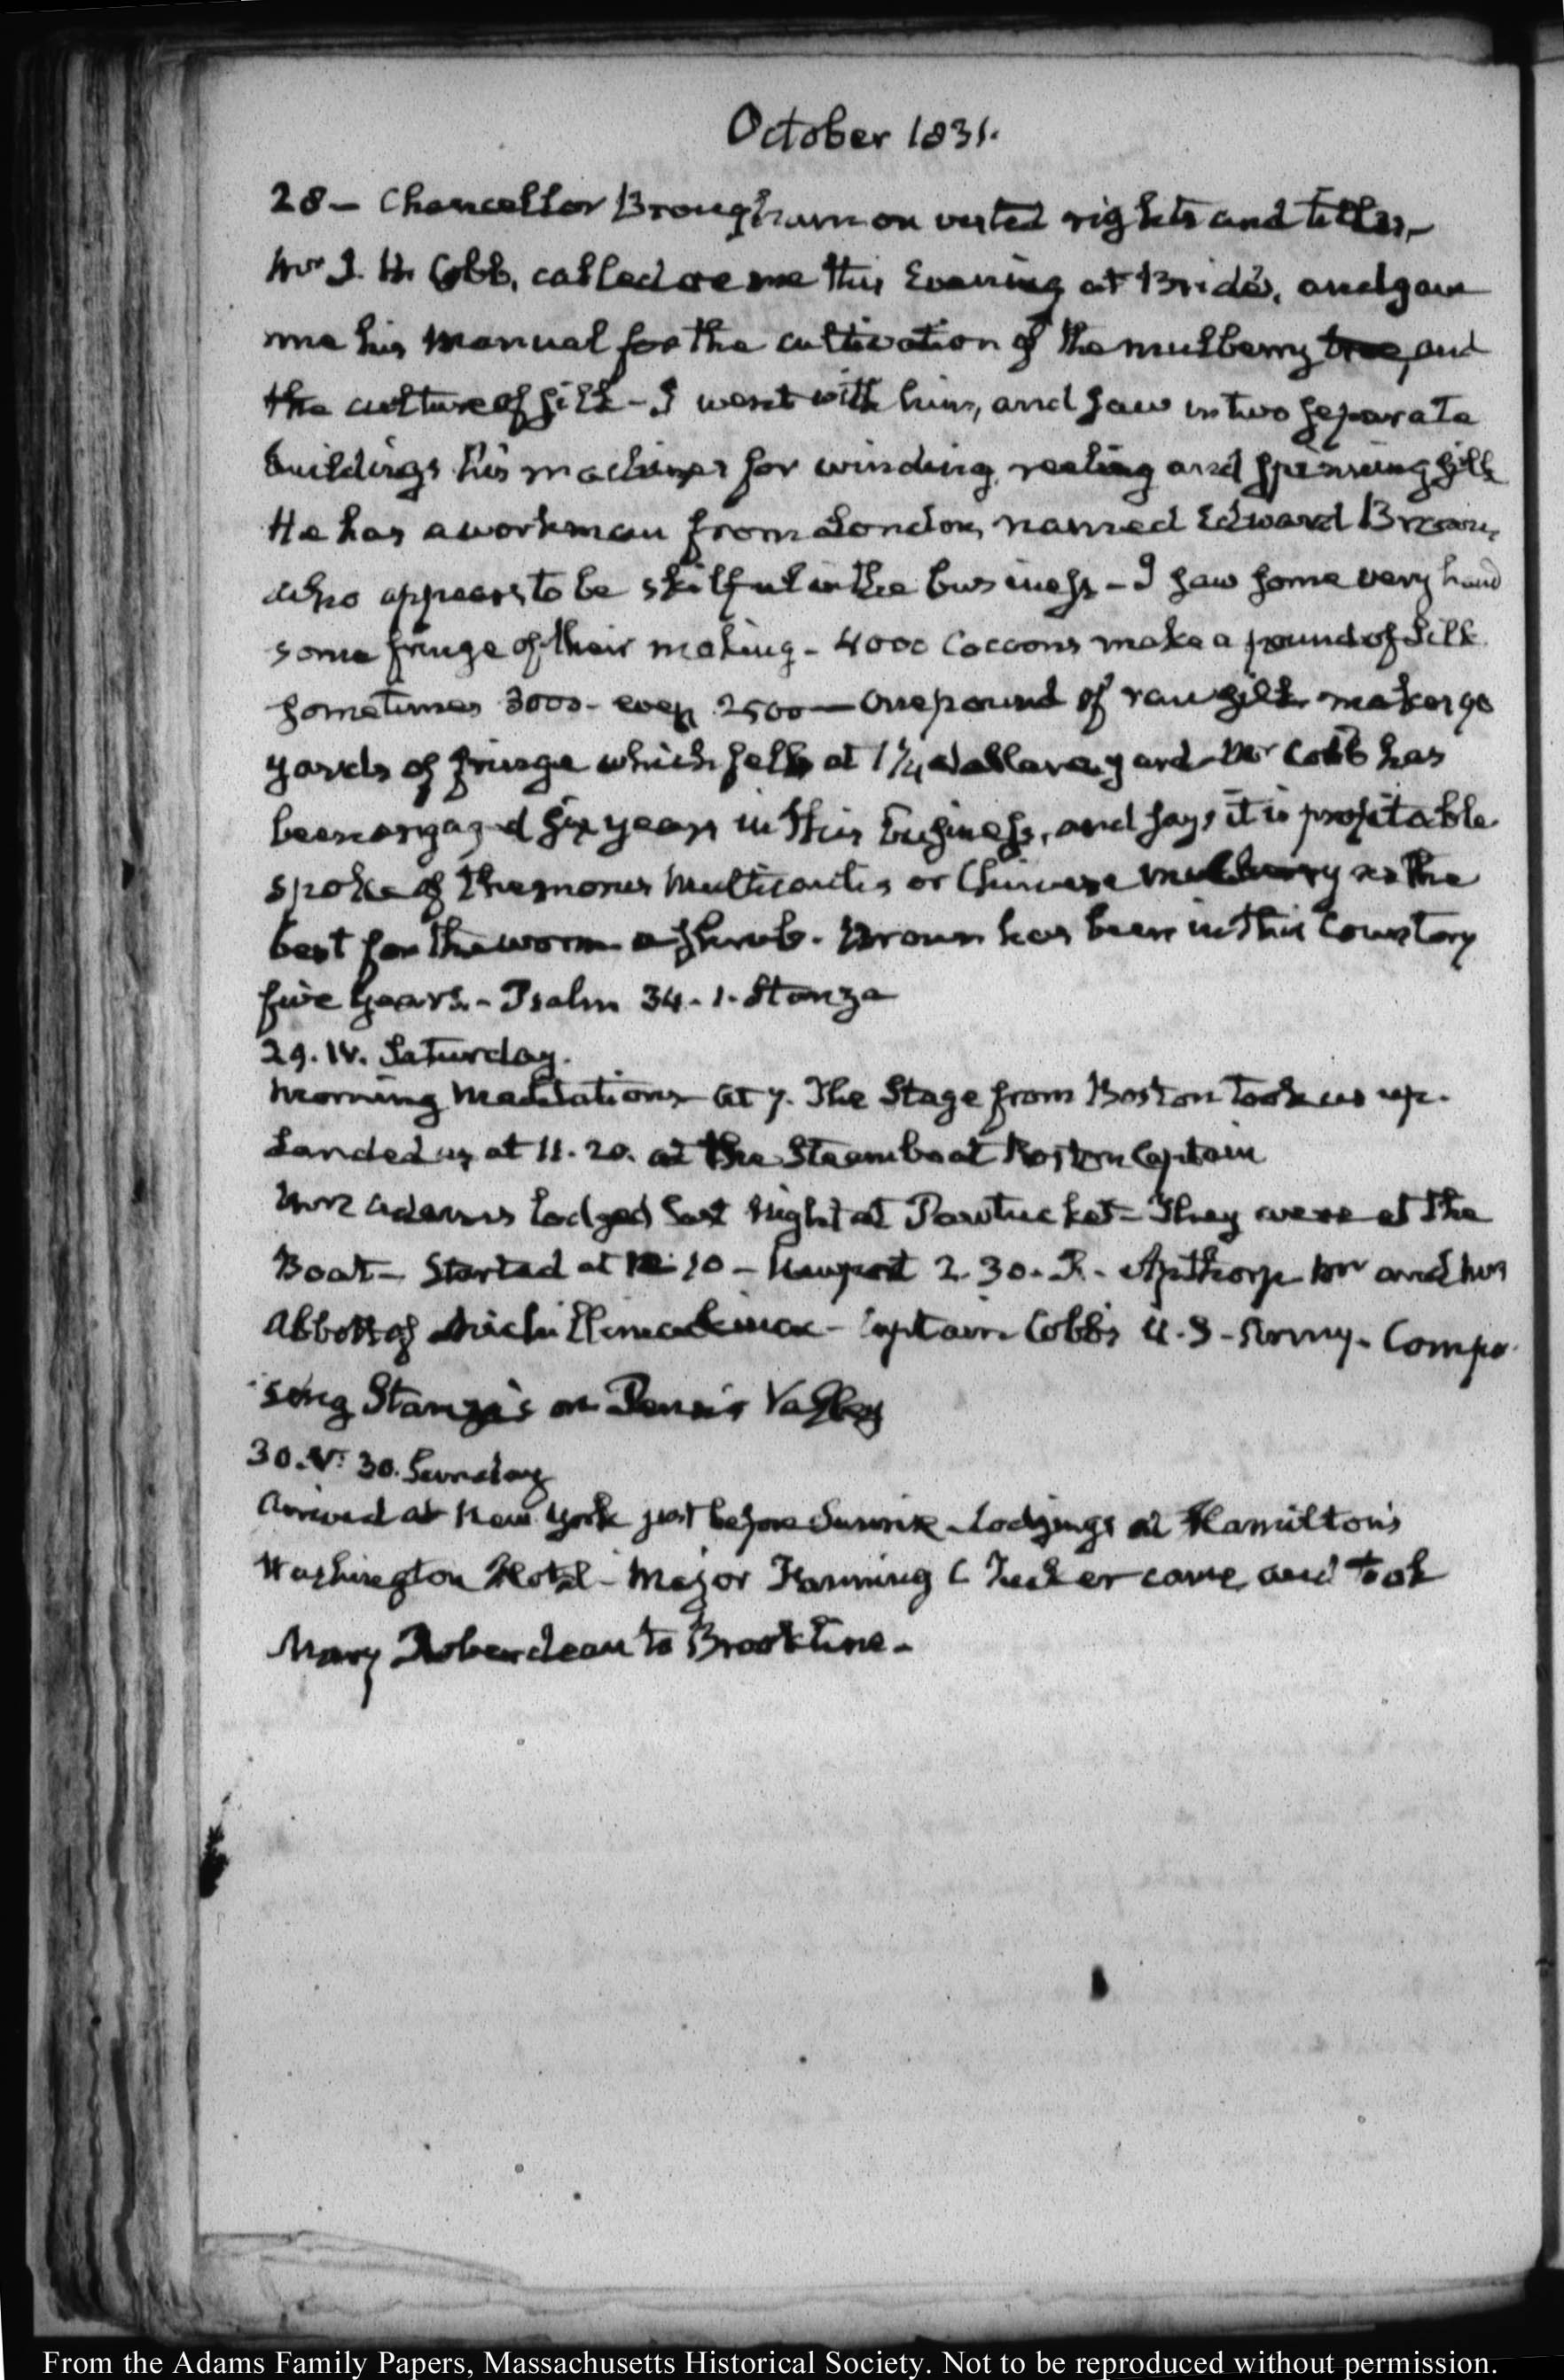 October 1831.
28 – Chancellor Brougham on vested rights and titles –
Mr J. H. Cobb, called on me this Evening at Bride's, and gave
me his Manual for the cultivation of the mulberry tree, and
the culture of silk – I went with him, and saw in two separate
buildings his machines for winding, reeling and spinning silk
He has a workman from London, named Edward Brown,
who appears to be skilful in the business – I saw some very hand
some fringe of their making – 4000 Cocoons make a pound of Silk
sometimes 3000 – even 2500 — One pound of raw silk makes 90
yards of fringe which sells at 1 1/4 dollar a yard – Mr Cobb has
been engaged six years in this business, and says it is profitable
spoke of the morus Multicaulis or Chinese mulberry as the
best for the worm a shrub. Brown has been in this Country
five years. – Psalm 34. 1. Stanza
29. IV. Saturday.
Morning Meditations – at 7. The Stage from Boston took us up.
Landed us at 11.20. at the Steamboat Boston Captain
Mrs Adams lodged last Night at Pawtucket – They were at the
Boat – Started at 12.10 – Newport 2.30. R. Apthorp Mr and Mrs
Abbott of Michillimackinac – Captain Cobbs U.S. Army – Compo
sing Stanza's on
30. V: 30. Sunday
Arrived at New York just before Sunrise – Lodgings at Hamilton's
Washington Hotel – Major Fanning C Tucker came and took
Mary Roberdeau to Brookline –
From the Adams Family Papers, Massachusetts Historical Society. Not to be reproduced without permission.